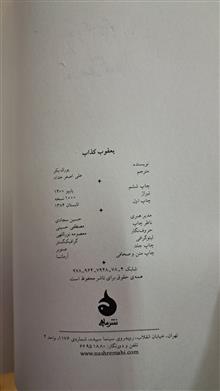 یعقوب کذاب
نویسنده یورک بکر
مترجم علی اصغر حداد
چاپ ششم پاییز ۱۴۰۰
تیراژ ۱۰۰۰ نسخه
چاپ اول تابستان ۱۳۸۴
مدیر هنری حسین سجادی
ناظر چاپ مصطفی حسینی
حروف‌نگار
لیتوگرافی
چاپ جلد صنوبر
چاپ متن و صحافی آرمانسا
شابک ۴ـ۷۸ـ۷۹۴۸ـ۹۶۴ـ۹۷۸
همه‌ی حقوق برای ناشر محفوظ است
نشر ماهی
تهران، خیابان انقلاب، روبه‌روی سینما سپیده، شماره‌ی ۱۱۷۶، واحد ۴
تلفن و دورنگار: ۶۶ ۹۵ ۱۸ ۸۰
www.nashremahi.com